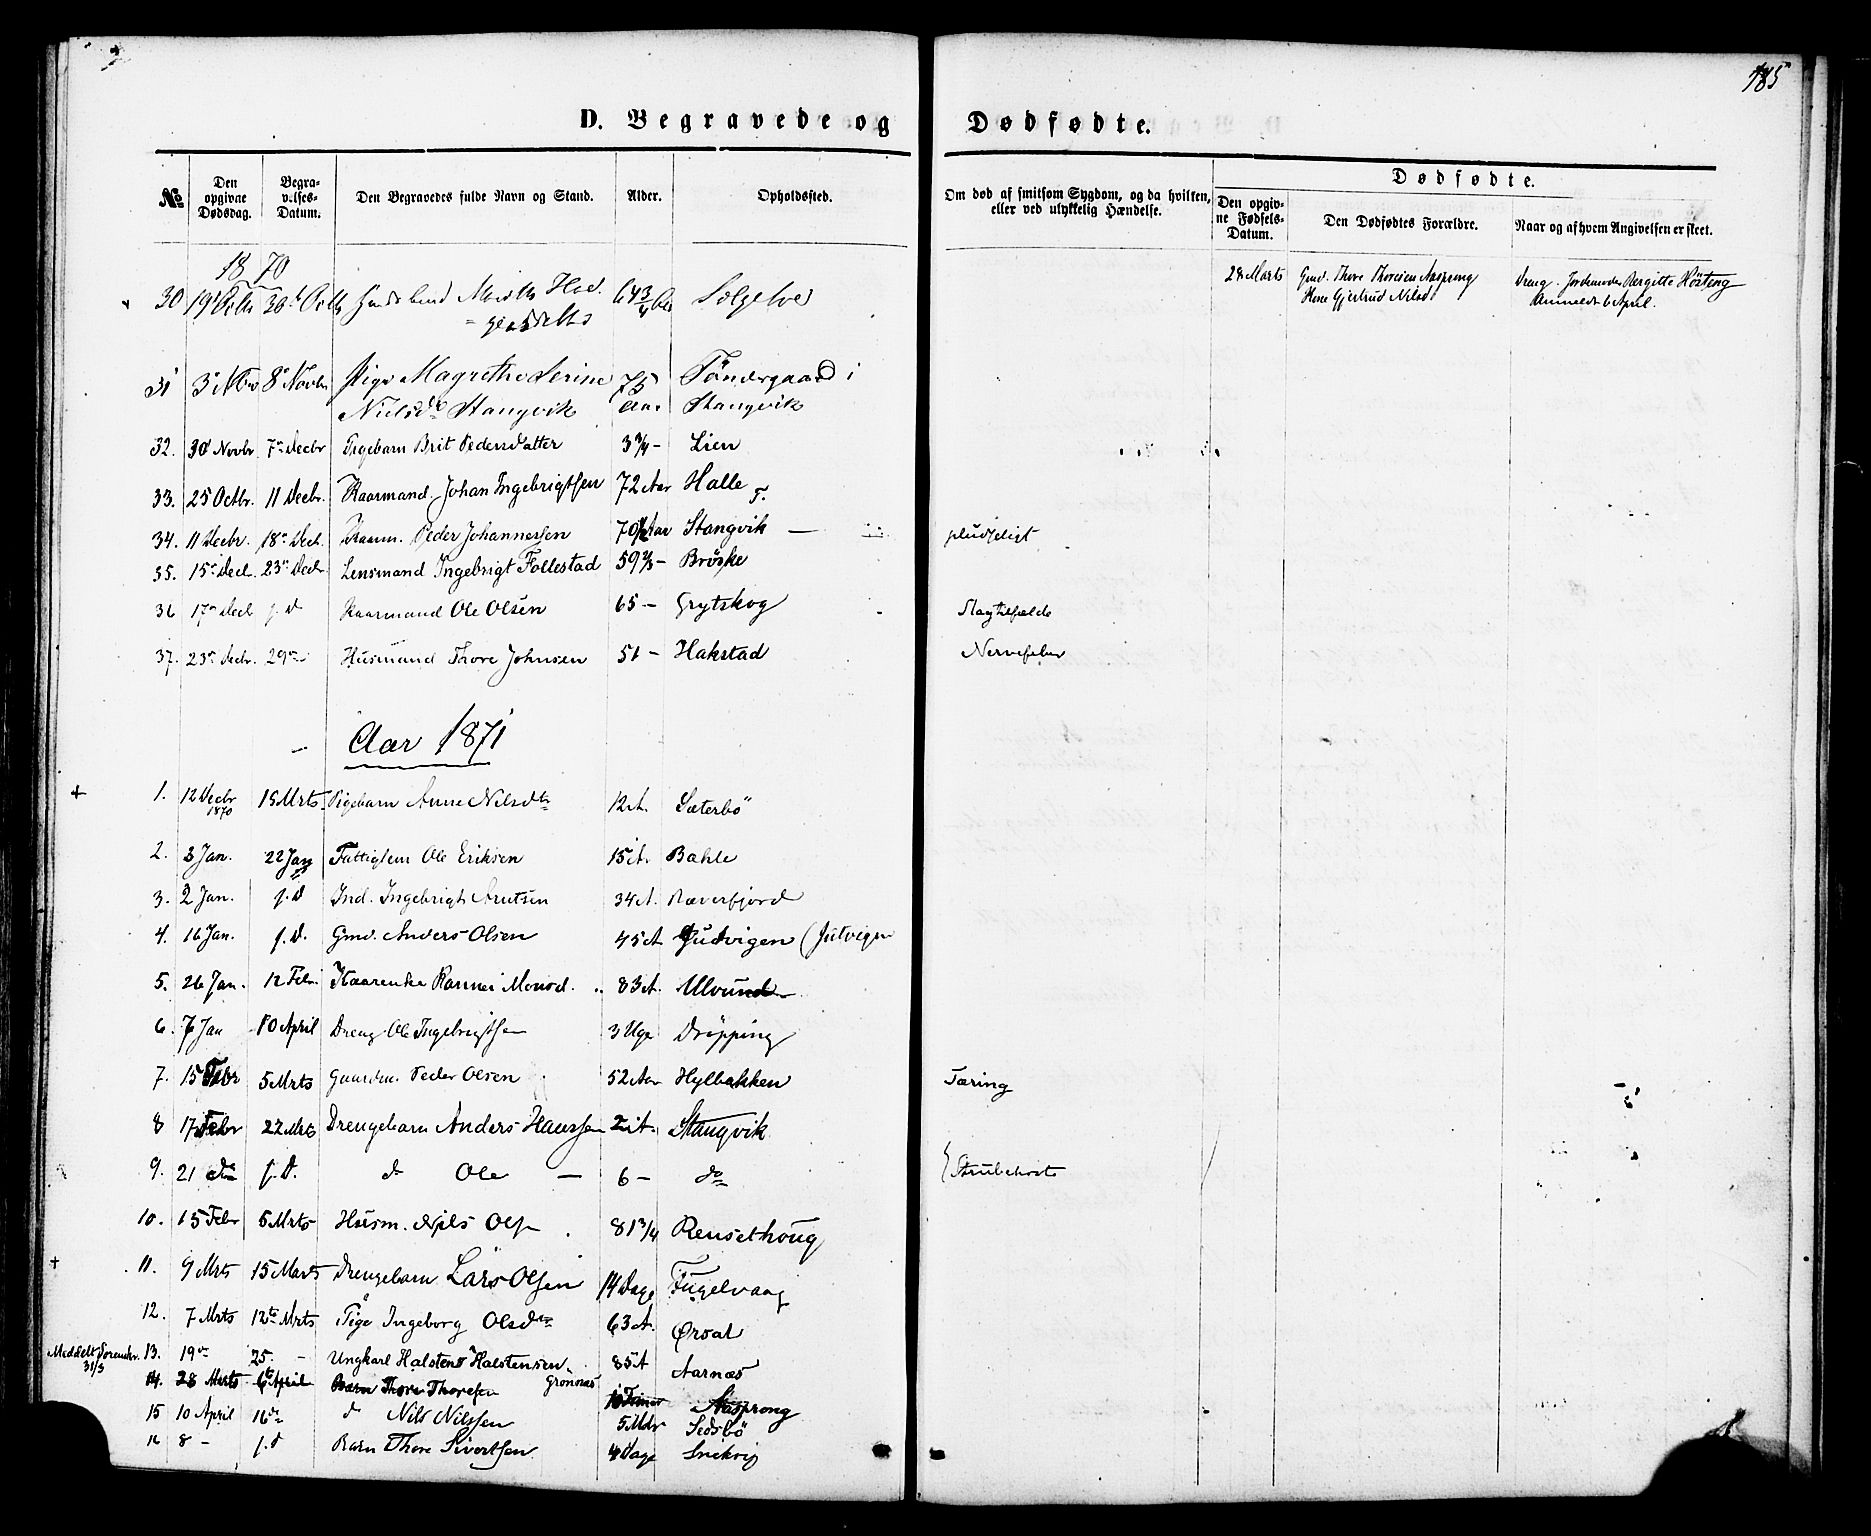 185
D. Begravede og Dødfødte.
No
Den opgivne Dødsdag.
Begravelses-Datum.
Den Begravedes fulde Navn og Stand.
Alder.
Opholdssted.
Om død af smitsom Sygdom, og da hvilken, eller ved ulykkelig Hændelse.
Dødfødte.
Den opgivne Fødsels-Datum.
Den Dødfødtes Forældre.
Naar og af hvem Angivelsen er skeet.
1870
28 Marts Gmd. Thore Thoresen Aasprong Drenge. Jordemoder Bergitte Hösteng
Kone Gjertrud Nilsd. Anmeldt 6 April.
30 19 Octb 30 Octb 64 3/4 Aar Solgelve
31 3 Nbr 8 Novbr Pige Magrethe Serine 75 Töndergaard i
Nielsdtr Stangvik Aar Stangvik
32. 30 Novbr 7 Decbr Pigebarn Brit Pedersdatter 3 3/4 - Lien
33. 25 Octbr. 11 Decbr. Kaarmand. Johan Ingebrigtsen 72 Aar Halle T.
34. 11 Decbr. 18 Dec. Kaarm. Peder Johannessen 70 1/2 Aar Stangvik — pludseligt
35. 15 Dec. 23 Decb Lensmand Ingebrigt Follestad 59 2/3 - Bröske
36 17 Decb s. D Kaarmand Ole Olsen 65 - Grytskog Slagtilfælde
37. 23 Decbr. 29 Husmand Thore Johnsen 51 - Hakstad Nervefeber
Aar 1871
1. 12 Decbr 1870 15 Mrts Pigebarn Anne Nilsdtr 12 A. Sæterbö
2. 3 Jan. 22 Jan Fattiglem Ole Eriksen 15 A. Bahle
3. 2 Jan. s. D Ind. Ingebrigt Arntsen 34 A. Ræverfjord
4. 16 Jan. s. D. Gmd. Anders Olsen 45 A Judvigen (Jutvigen
5. 26 Jan. 12 Febr. Kaarenke Rannei Monsd. 83 A. Ulvund
6. 7 Jan 10 April Dreng Ole Ingebrigtsen 3 Uge Dröpping
7. 15 Febr 5 Mrts Gaardm. Peder Olsen 52 Aar Hylbakken Tæring
8 17 Febr 22 Mrts Drengebarn Anders Hanssen 2 A. Stangvik
9. 21 do s. D. do Ole — 6 - do Strubehoste
10. 15 Febr 5 Mrts Husm. Nils Olsen 81 3/4 Rensethoug
11. 9 Mrts 15 Marts Drengebarn Lars Olsen 14 Dage Fugelvaag
12. 7 Mrts 12te Mrts Pige Ingeborg Olsdtr 63 A. Ørsal
Meddelt Sorenskr. 31/3 13. 19 25. - Ungkarl Halsten Halstensen. Grönnæs 85 A Aarnæs
14. 28 Marts 6te April Barn Thore Thoresen 10 Timer Aasprong
15 10 April 16 do d Nils Nilssen 5 Mdr Sedsbö
16 8 - s. D Barn Thore Sivertsen 4 Dage Snekvig